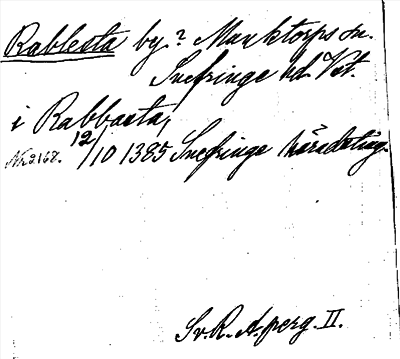 Rablesta by? Marktorps sn.
Snefringe hd. Vst.
i Rabbasta,
Nr. 2168. 12/10 1385 Snefringe häradsting.
Sv. R. A. perg. II.